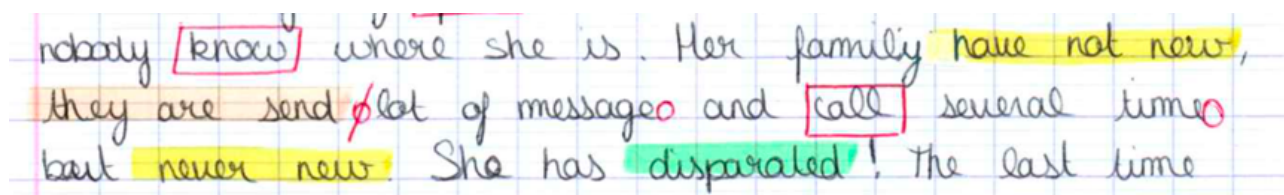 nobody know where she is. Her family have not new,
they are send lot of message and call several time
but never new. She has disparated! The last time